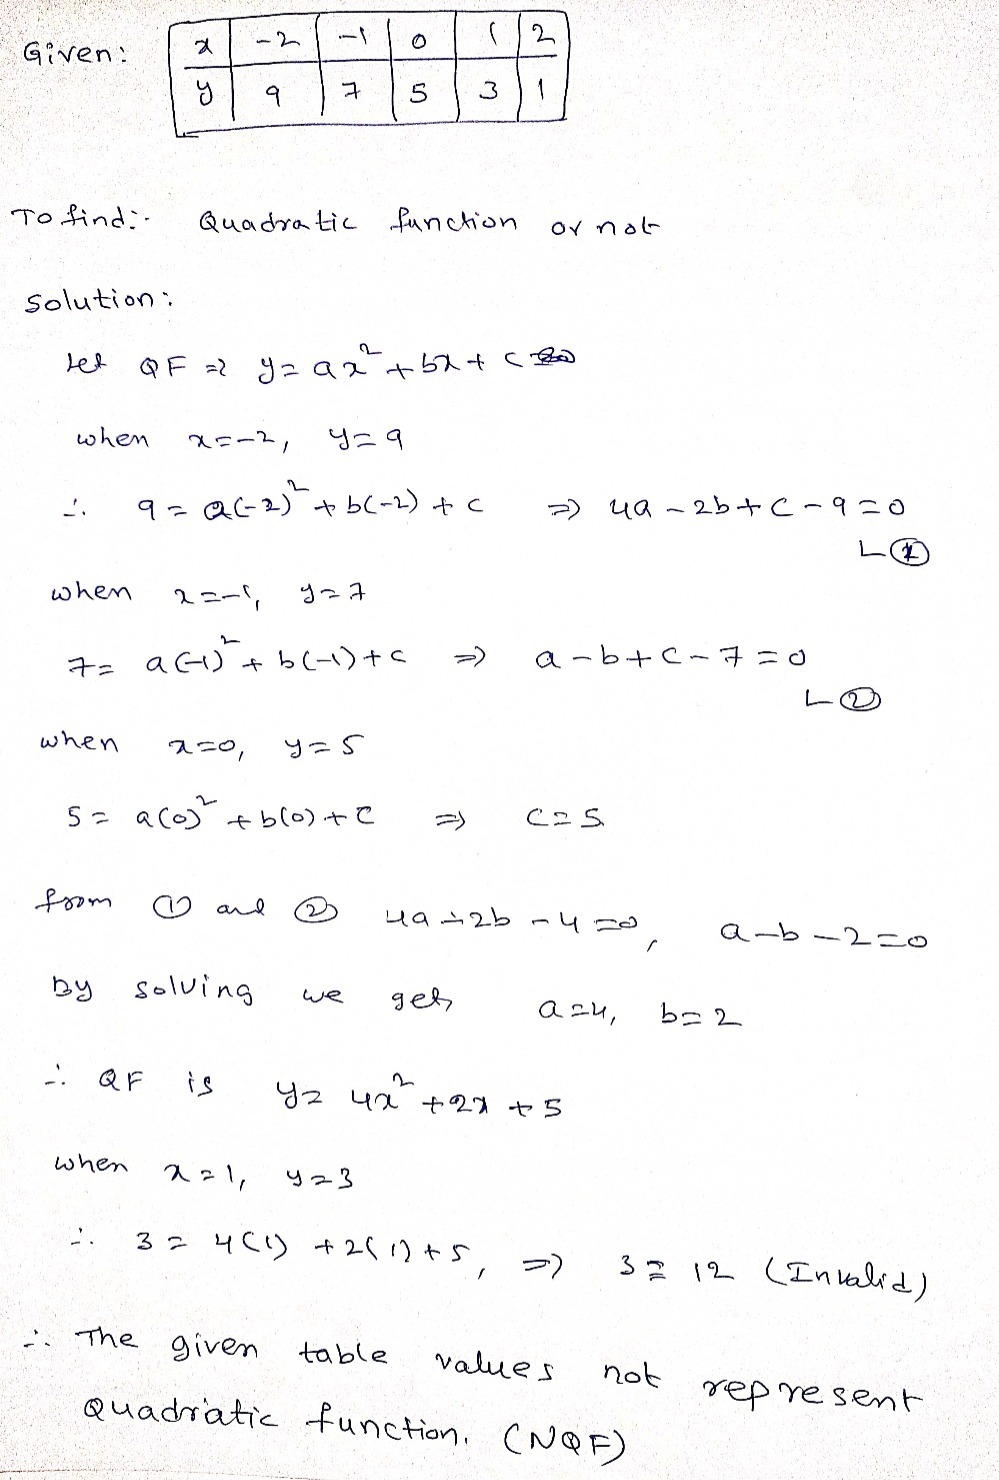 Given:
x | -2 | -1 | 0 | 1 | 2
y | 9 | 7 | 5 | 3 | 1
To find:- Quadratic function or not
Solution:
Let QF => y = ax² + bx + c
when x=-2, y=9
∴ 9 = a(-2)² + b(-2) + c => 4a - 2b + c - 9 = 0
∟①
when x=-1, y=7
7 = a(-1)² + b(-1) + c => a - b + c - 7 = 0
∟②
when x=0, y=5
5 = a(0)² + b(0) + c => c = 5
from ① and ② 4a - 2b - 4 = 0, a - b - 2 = 0
by solving we get, a=4, b=2
∴ QF is y = 4x² + 2x + 5
when x=1, y=3
∴ 3 = 4(1) + 2(1) + 5, => 3 = 12 (Invalid)
∴ The given table values not represent
Quadratic function. (NQF)